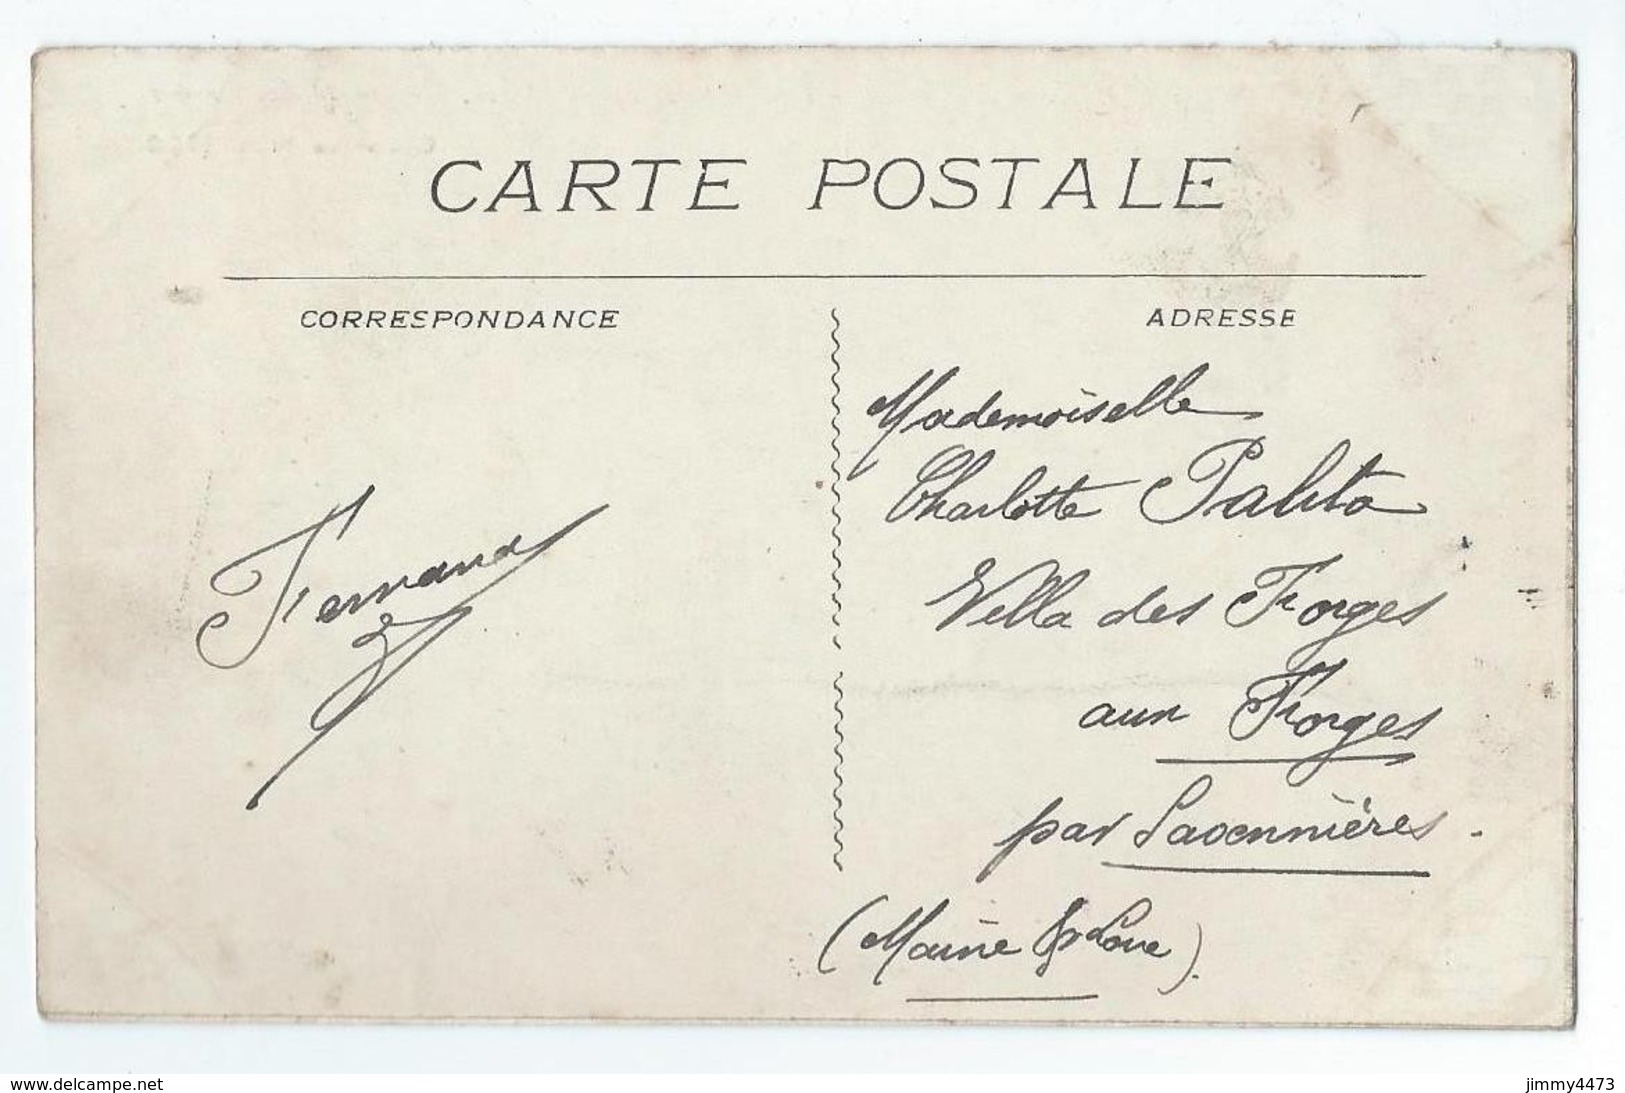 CARTE POSTALE
CORRESPONDANCE
ADRESSE
Fernand
Mademoiselle
Charlotte
Villa des Forges
aux Forges
par Savennières.
(Maine & Loire).
www.delcampe.net
jimmy4473